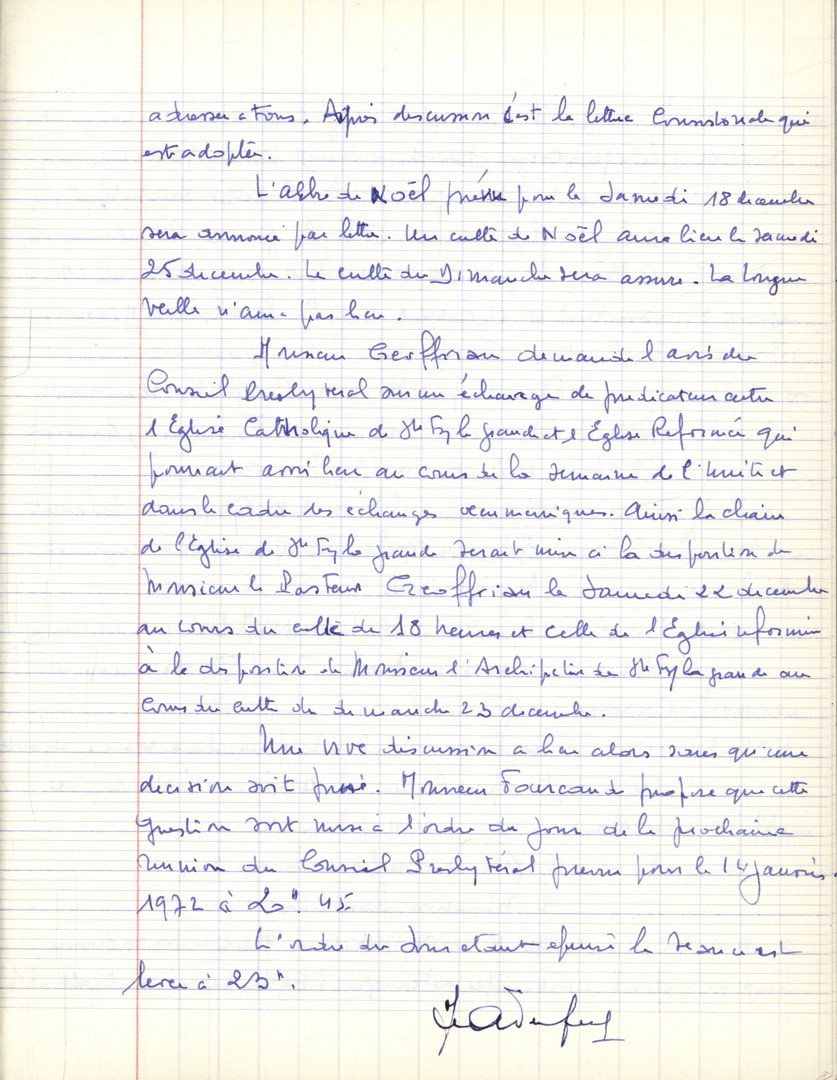 adresser a tous. Après discussion c'est la lettre Consistoriale qui
est adoptée.
L'arbre de Noël prévu pour le Samedi 18 decembre
sera annoncé par lettre. Un culte de Noël aura lieu le samedi
25 decembre. Le culte du Dimanche sera assuré. La longue
veille n'aura pas lieu.
Monsieur Geoffrian demande l'avis du
Conseil Presbyteral sur un échange de predicateurs entre
l'Eglise Catholique de Ste Foy la grande et l'Eglise Reformée qui
pourrait avoir lieu au cours de la semaine de l'Unité et
dans le cadre des échanges oecumeniques. Ainsi la chaire
de l'Eglise de Ste Foy la grande serait mise à la disposition de
Monsieur le Pasteur Geoffrian le Samedi 22 decembre
au cours du culte de 18 heures et celle de l'Eglise reformée
à la disposition de Monsieur l'Archiprêtre de Ste Foy la grande au
cours du culte du dimanche 23 decembre.
Une vive discussion a lieu alors sans qu'une
decision soit prise. Monsieur Fourcaud propose que cette
question soit mise à l'ordre du jour de la prochaine
reunion du Conseil Presbytéral prevue pour le 14 janvier
1972 à 20h 45
L'ordre du jour etant epuisé la seance est
levée à 23h.